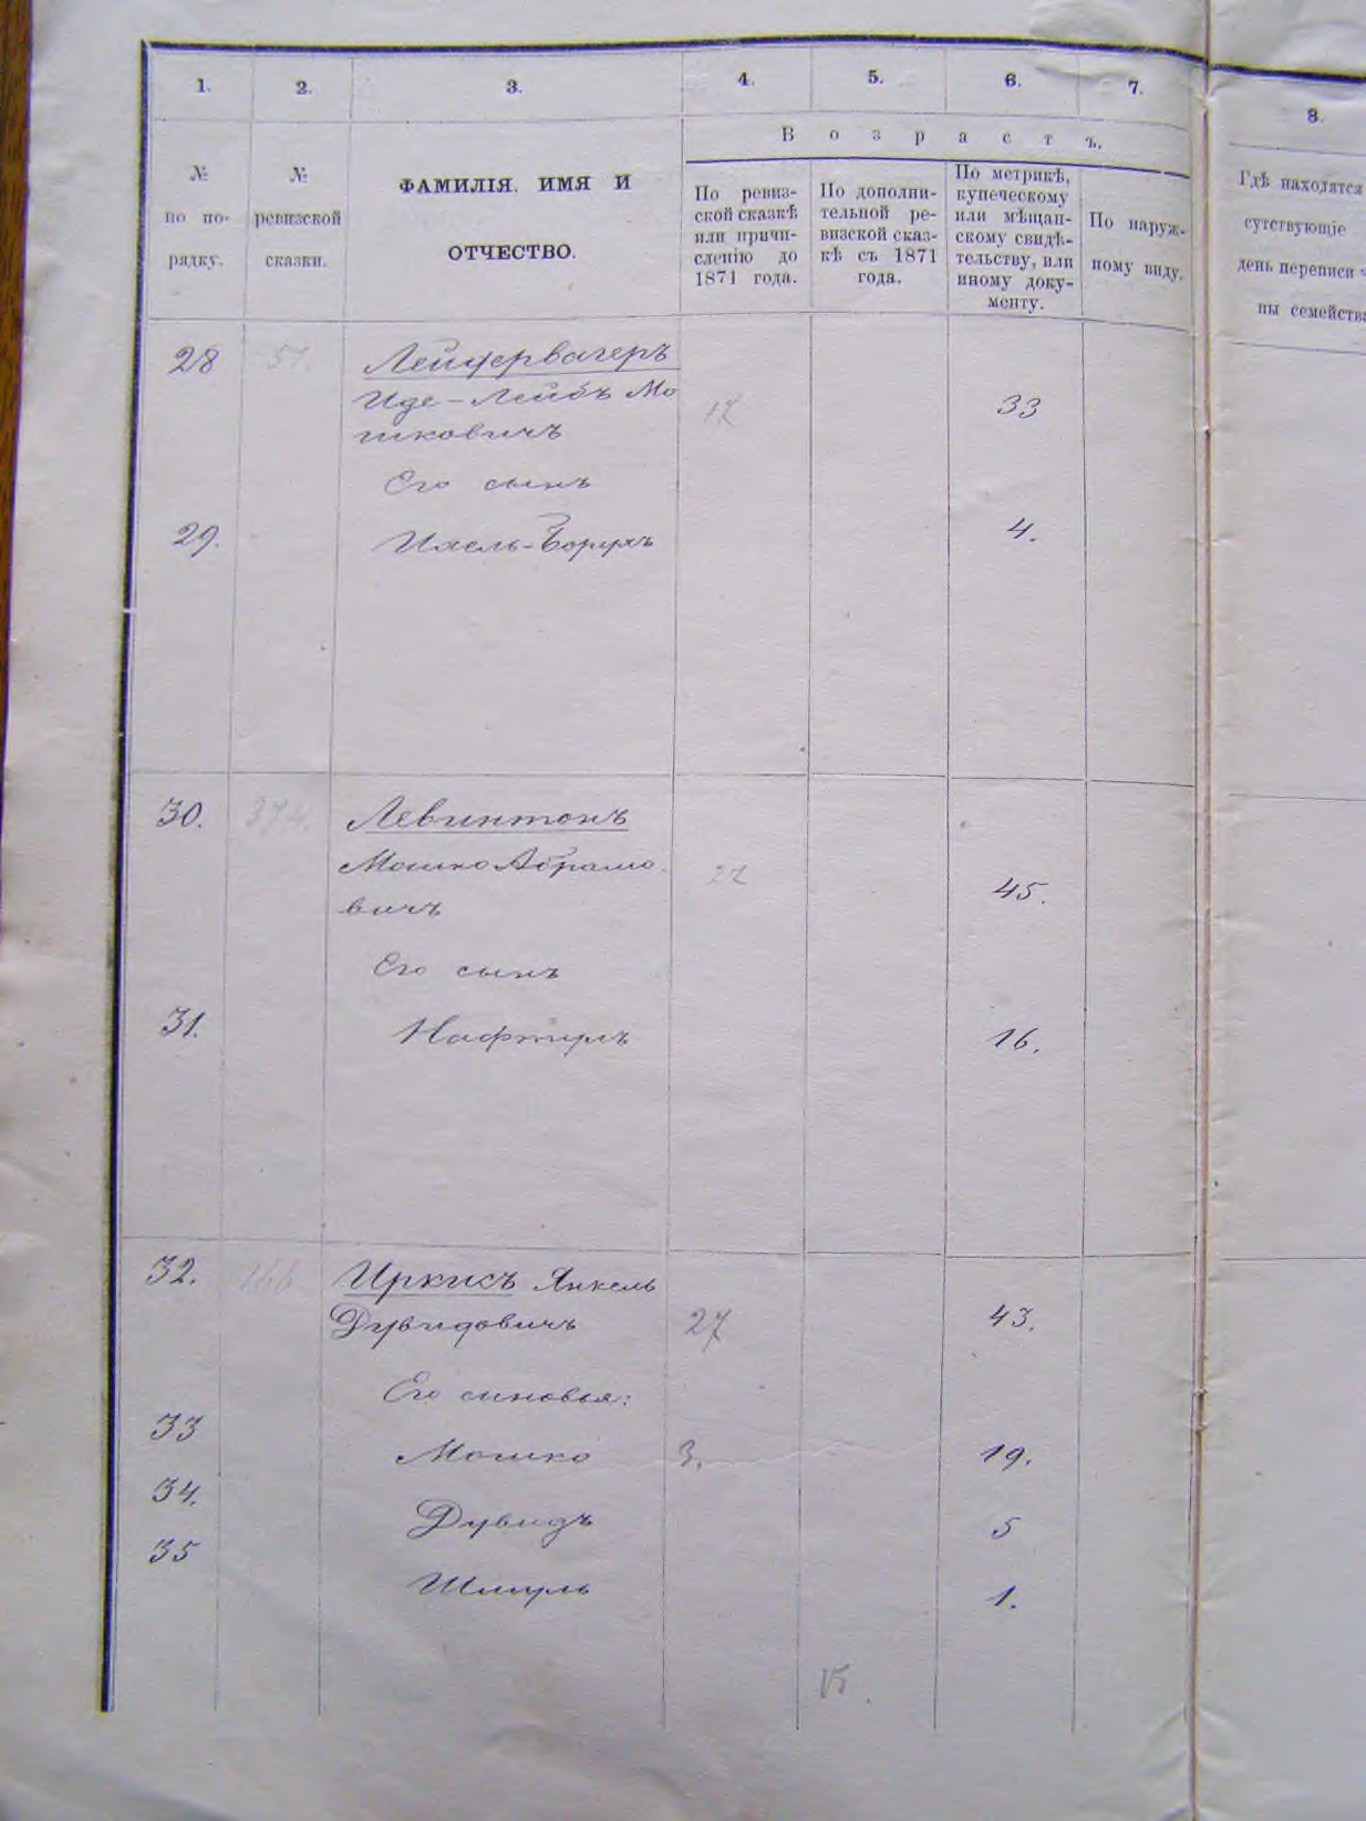 1. 2. 3. 4. 5. 6. 7. 8.
Возрастъ.
№ по по-рядку.
№ ревизской сказки.
ФАМИЛІЯ, ИМЯ И
ОТЧЕСТВО.
По ревиз-
ской сказкѣ
или причи-
сленію до
1871 года.
По дополни-
тельной ре-
визской сказ-
кѣ съ 1871
года.
По метрикѣ,
купеческому
или мѣщан-
скому свидѣ-
тельству, или
иному доку-
менту.
По наруж-
ному виду.
Гдѣ находятся
сутствующіе
день переписи
ны семейства
28 57. Лейфервагеръ
Иде-Лейбъ Мо 17 33
шковичъ
Его сынъ
29. -Борухъ 4.
30. 374. Левинтонъ
Мошко Абрамо 27 45.
вичъ
Его сынъ
31. Нафтулъ 16.
32. 166 Иркисъ Янкель
Дувидовичъ 27 43.
Его синовья:
33 Мошко 3. 19.
34. Дувидъ 5
35 Шмуль 1.
15.